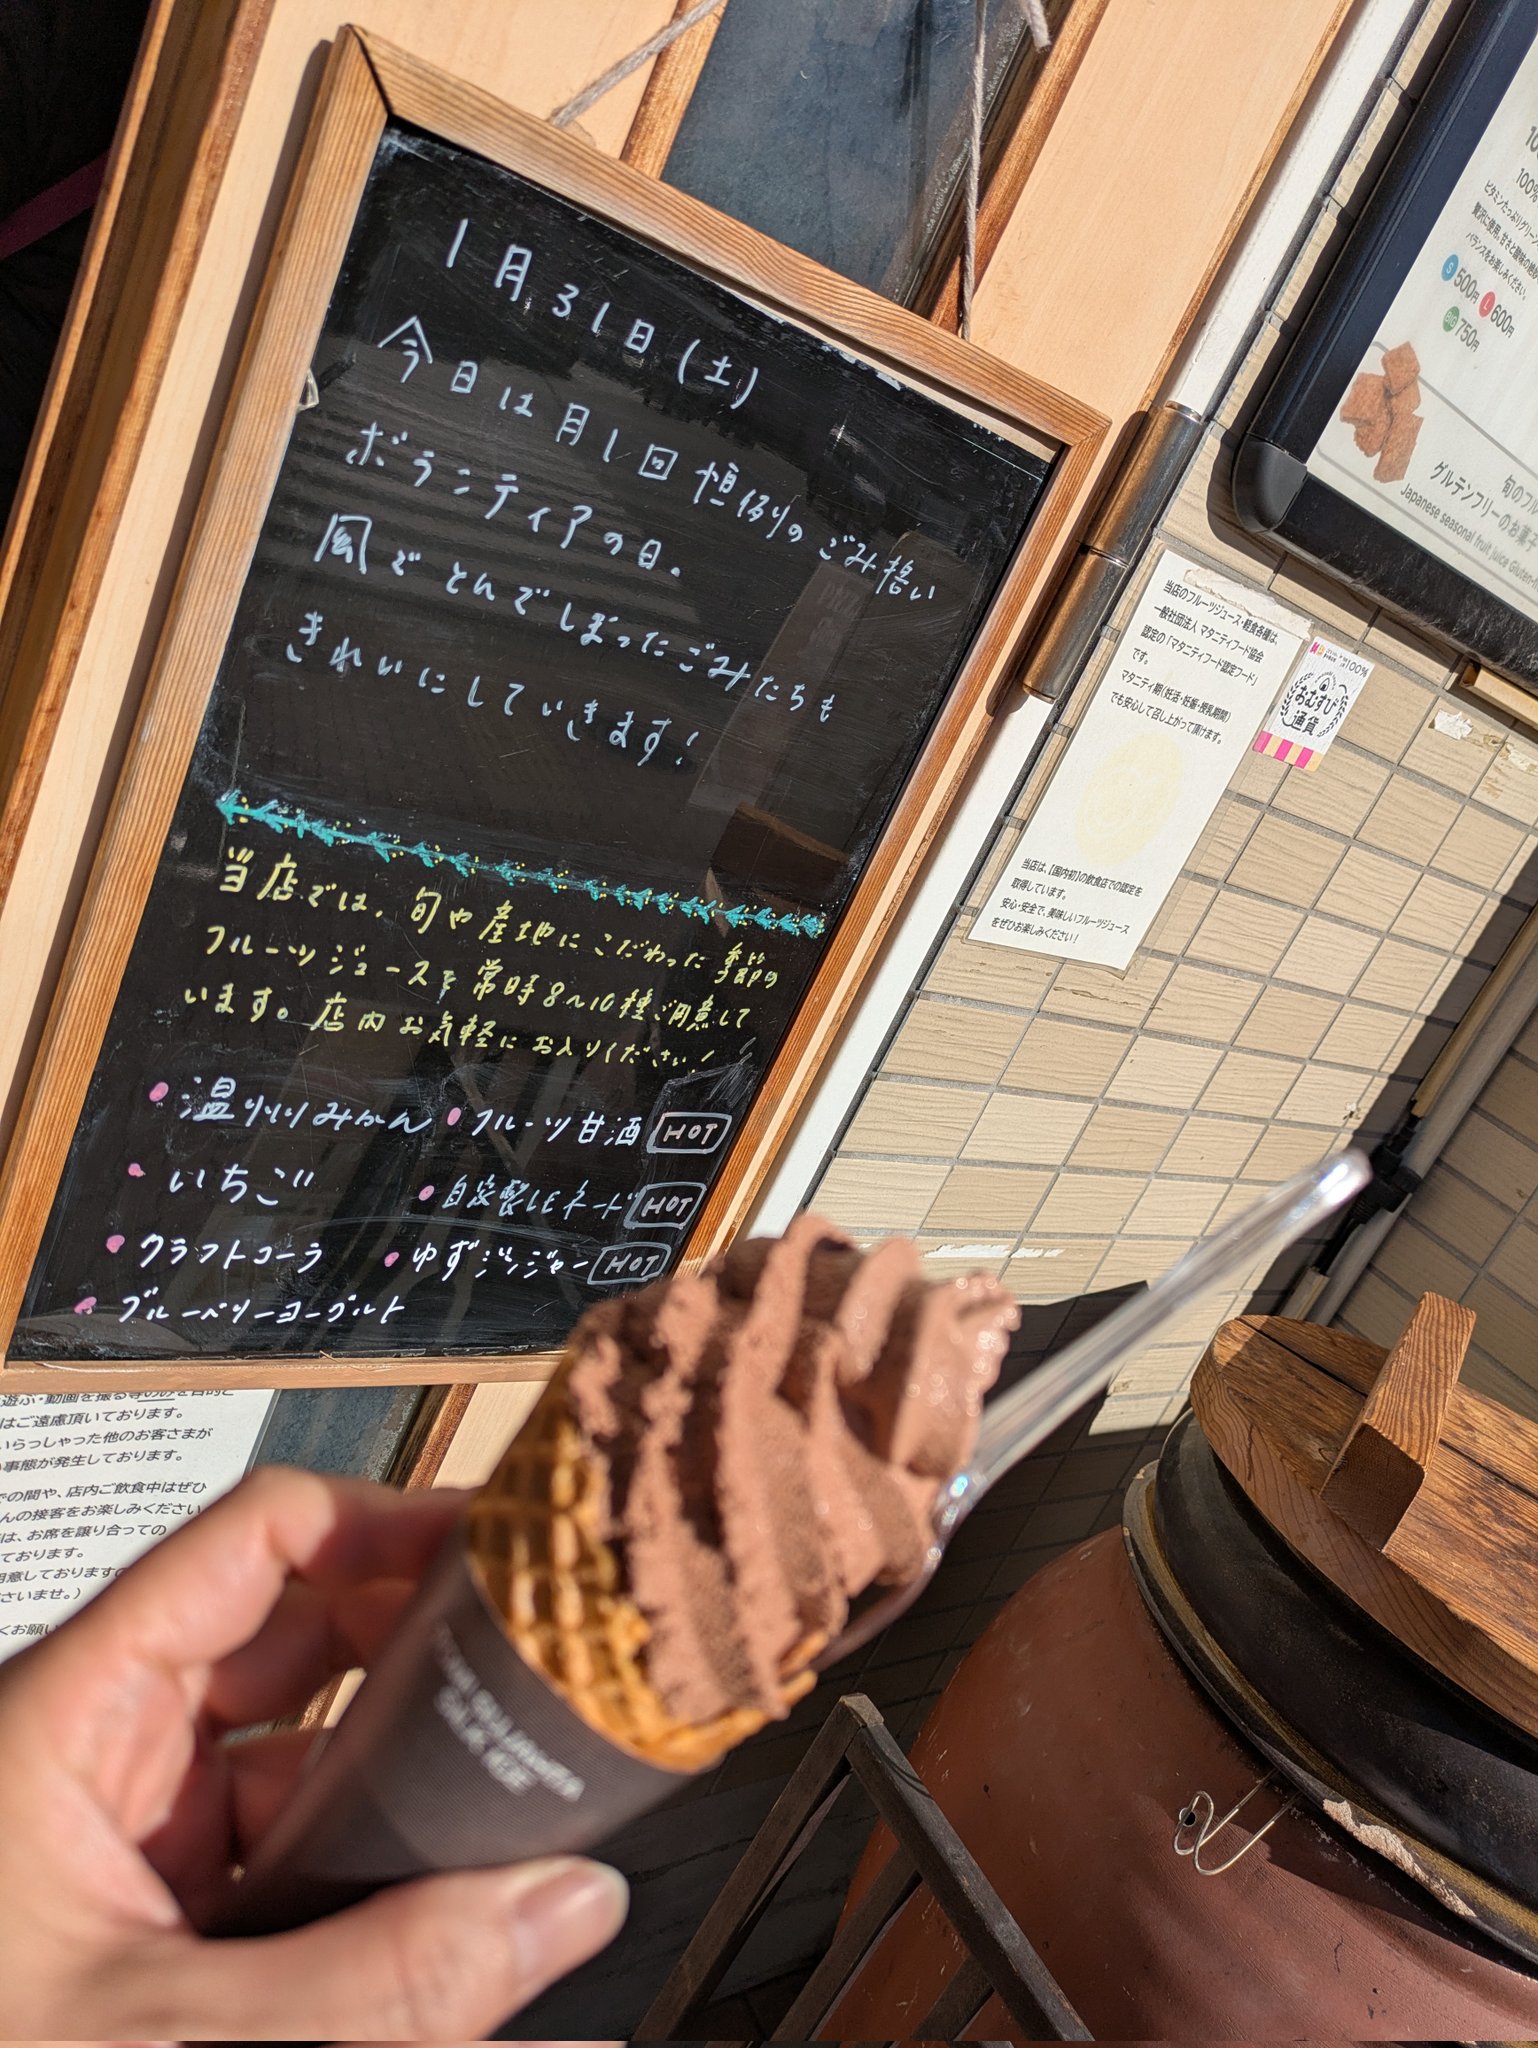 1月31日(土)
今日は月1回恒例のごみ拾い
ボランティアの日。
風でとんでしまったごみたちも
きれいにしていきます!
当店では、旬や産地にこだわった季節の
フルーツジュースを常時8〜10種ご用意して
います。店内お気軽にお入りください!
・温州みかん ・フルーツ甘酒 HOT
・いちご ・自家製レモネード HOT
・クラフトコーラ ・ゆずジンジャー HOT
・ブルーベリーヨーグルト
100%
ビタミンたっぷりグリーン
贅沢に使用。甘さと酸味の
バランスをお楽しみください。
S 500円 L 600円
BIG 750円
旬のフル
グルテンフリーのお菓子
Japanese seasonal fruit juice Gluten-f
当店のフルーツジュース・軽食各種は、
一般社団法人 マタニティフード協会
認定の「マタニティフード認定フード」
です。
マタニティ期(妊活・妊娠・授乳期間)
でも安心して召し上がって頂けます。
当店は、【国内初】の飲食店での認定を
取得しています。
安心・安全で、美味しいフルーツジュース
をぜひお楽しみください!
100%
おむすび
通貨
遊ぶ・動画を撮る等のみを目的と
はご遠慮頂いております。
いらっしゃった他のお客さまが
事態が発生しております。
での間や、店内ご飲食中はぜひ
んの接客をお楽しみください
は、お席を譲り合っての
ております。
用意しておりますの
ださいませ。)
くお願い
SILK ICE